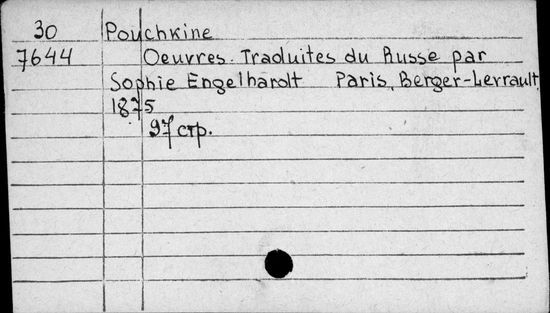 30 Pouchkine
7644 Oeuvres. Traduites du Russe par
Sophie Engelhardt Paris, Berger-Levrault,
1875
97 стр.